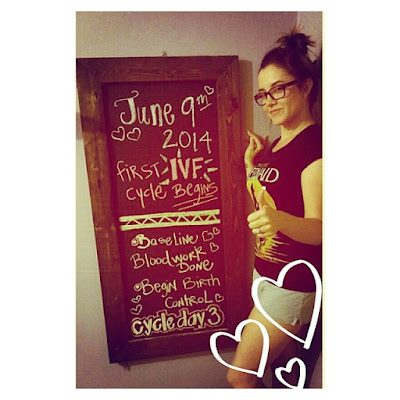 June 9th
2014
First IVF
Cycle Begins
Baseline
Bloodwork
Done
Begin Birth
Control
Cycle day 3